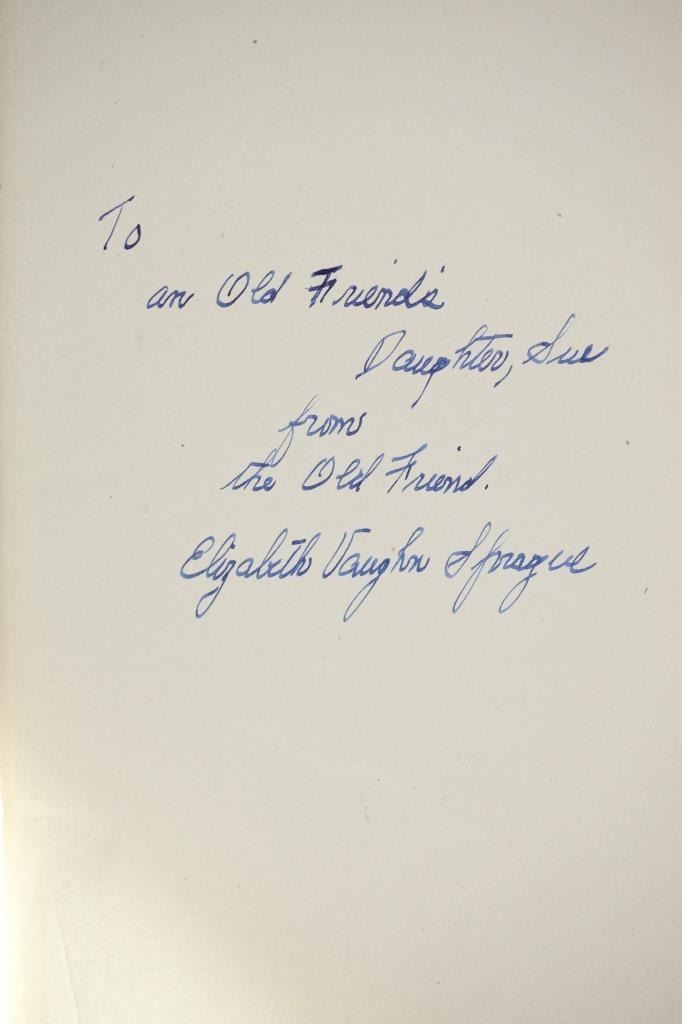 To
an Old Friend's
Daughter, Sue
from
the Old Friend.
Elizabeth Vaughn Sprague